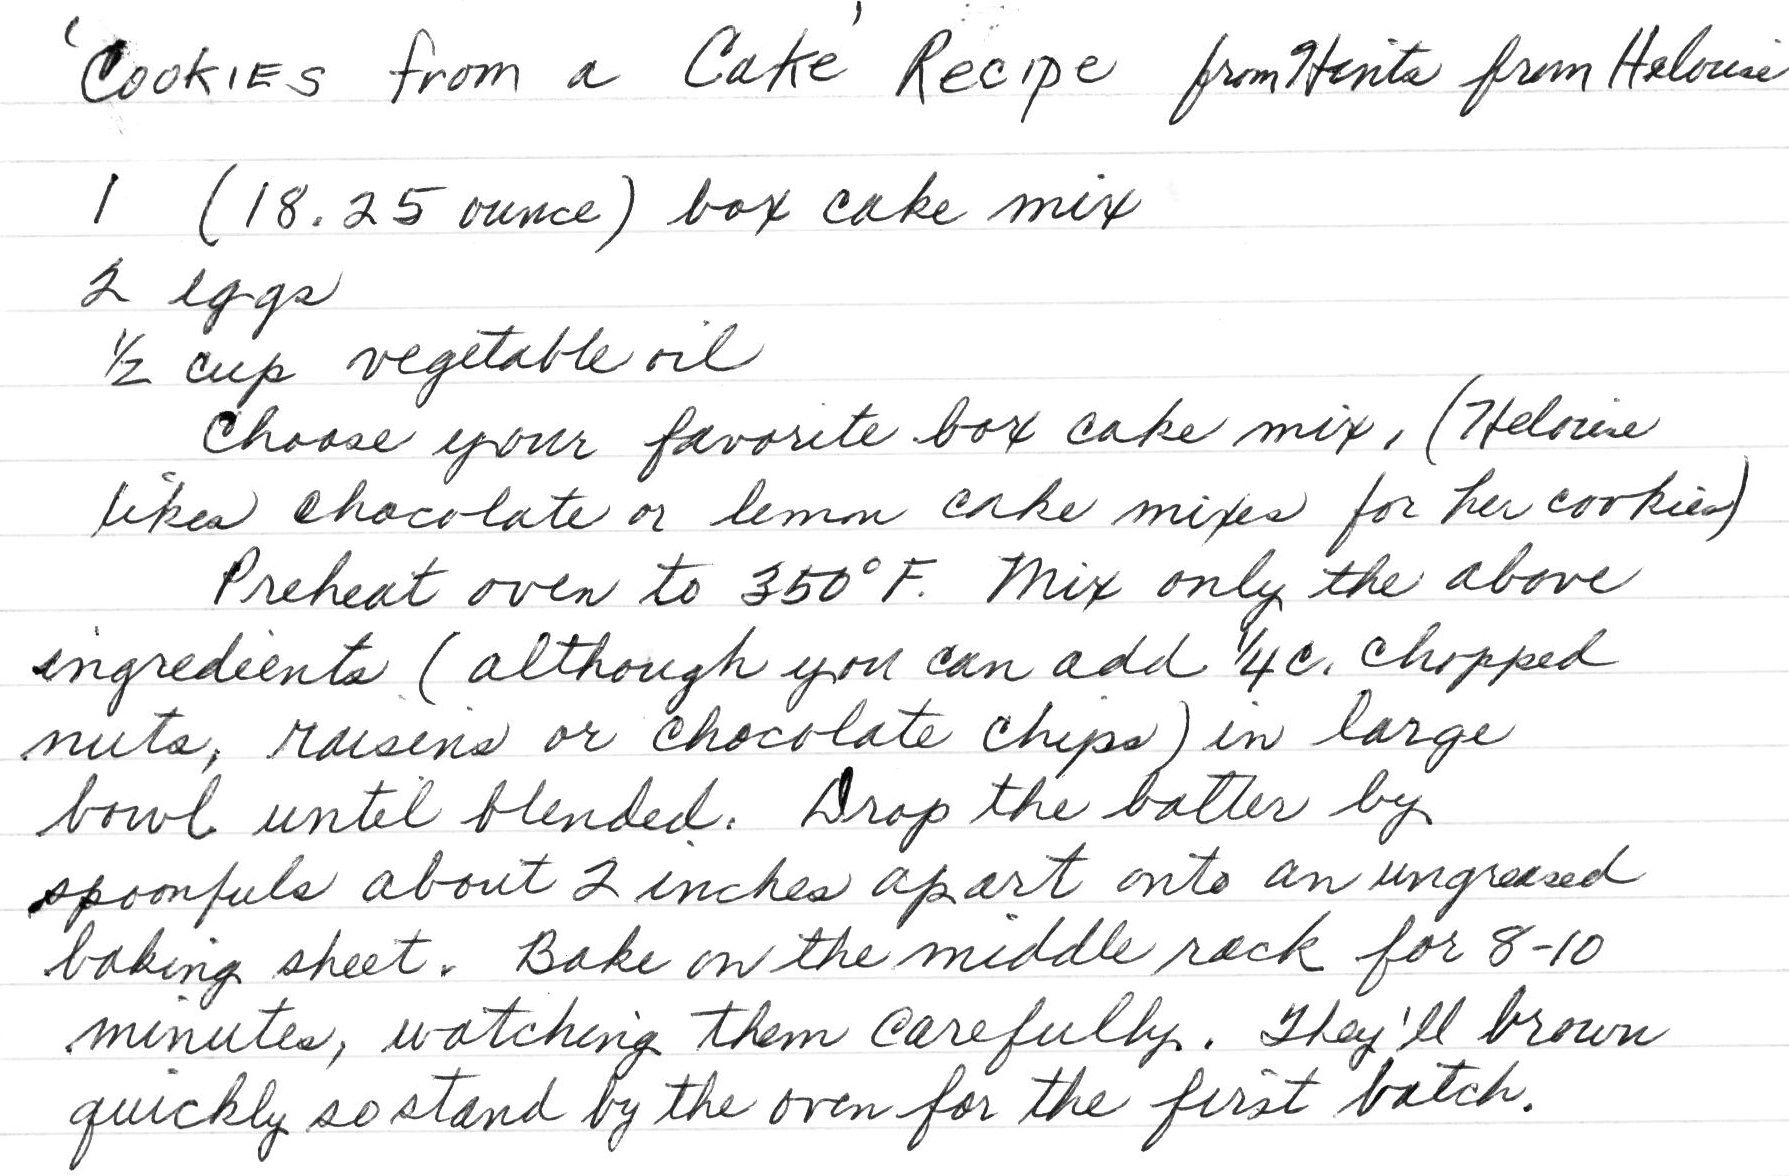 'Cookies from a Cake' Recipe from Hints from Heloise
1 (18.25 ounce) box cake mix
2 eggs
½ cup vegetable oil
Choose your favorite box cake mix. (Heloise
likes chocolate or lemon cake mixes for her cookies)
Preheat oven to 350° F. Mix only the above
ingredients (although you can add ¼ c. chopped
nuts, raisins or chocolate chips) in large
bowl until blended. Drop the batter by
spoonfuls about 2 inches apart onto an ungreased
baking sheet. Bake on the middle rack for 8-10
minutes, watching them carefully. They'll brown
quickly so stand by the oven for the first batch.